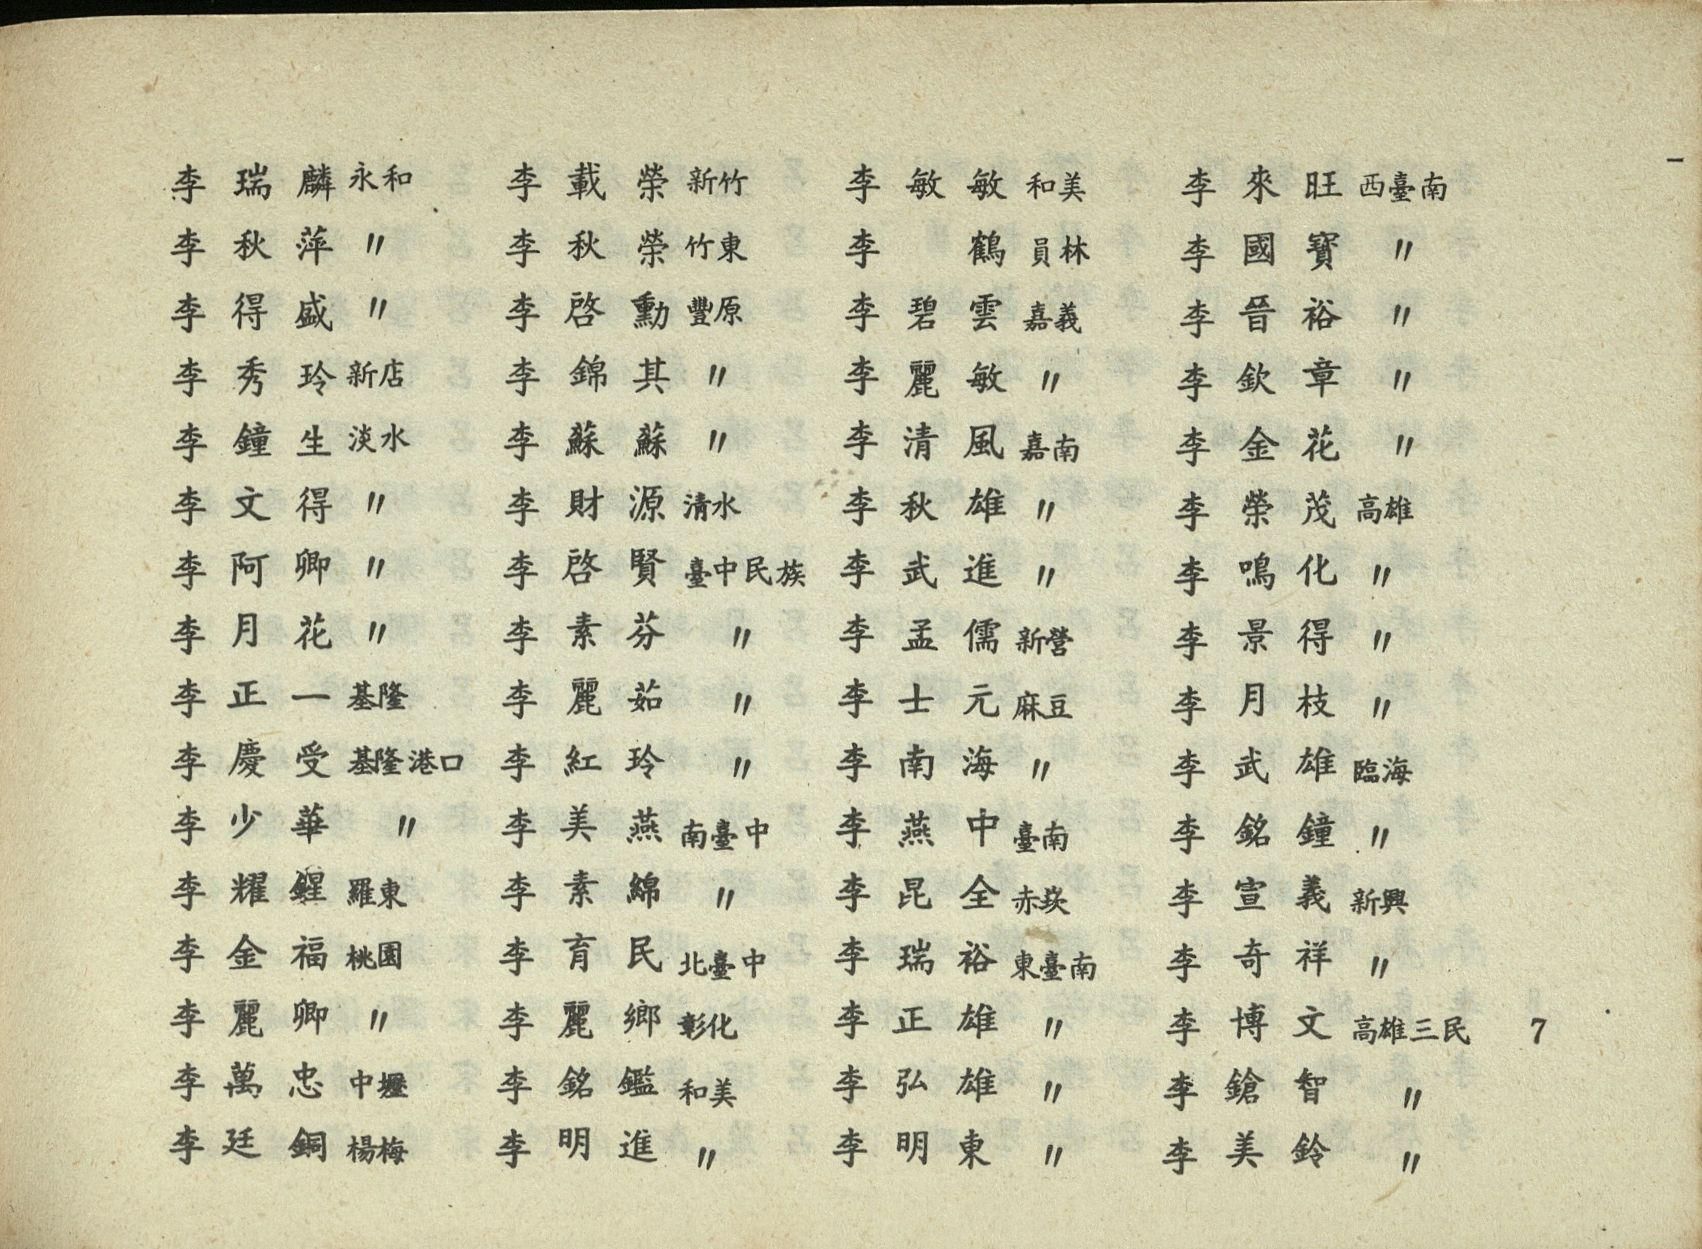 李瑞麟 永和
李秋萍 〃
李得盛 〃
李秀玲 新店
李鐘生 淡水
李文得 〃
李阿卿 〃
李月花 〃
李正一 基隆
李慶受 基隆港口
李少華 〃
李耀鍟 羅東
李金福 桃園
李麗卿 〃
李萬忠 中壢
李廷銅 楊梅
李載榮 新竹
李秋榮 竹東
李啓勳 豐原
李錦其 〃
李蘇蘇 〃
李財源 清水
李啓賢 臺中民族
李素芬 〃
李麗茹 〃
李紅玲 〃
李美燕 南臺中
李素綿 〃
李育民 北臺中
李麗鄉 彰化
李銘鑑 和美
李明進 〃
李敏敏 和美
李鶴 員林
李碧雲 嘉義
李麗敏 〃
李清風 嘉南
李秋雄 〃
李武進 〃
李孟儒 新營
李士元 麻豆
李南海 〃
李燕中 臺南
李昆全 赤崁
李瑞裕 東臺南
李正雄 〃
李弘雄 〃
李明東 〃
李來旺 西臺南
李國寶 〃
李晉裕 〃
李欽章 〃
李金花 〃
李榮茂 高雄
李鳴化 〃
李景得 〃
李月枝 〃
李武雄 臨海
李銘鐘 〃
李宣義 新興
李奇祥 〃
李博文 高雄三民
李鎗智 〃
李美鈴 〃
7